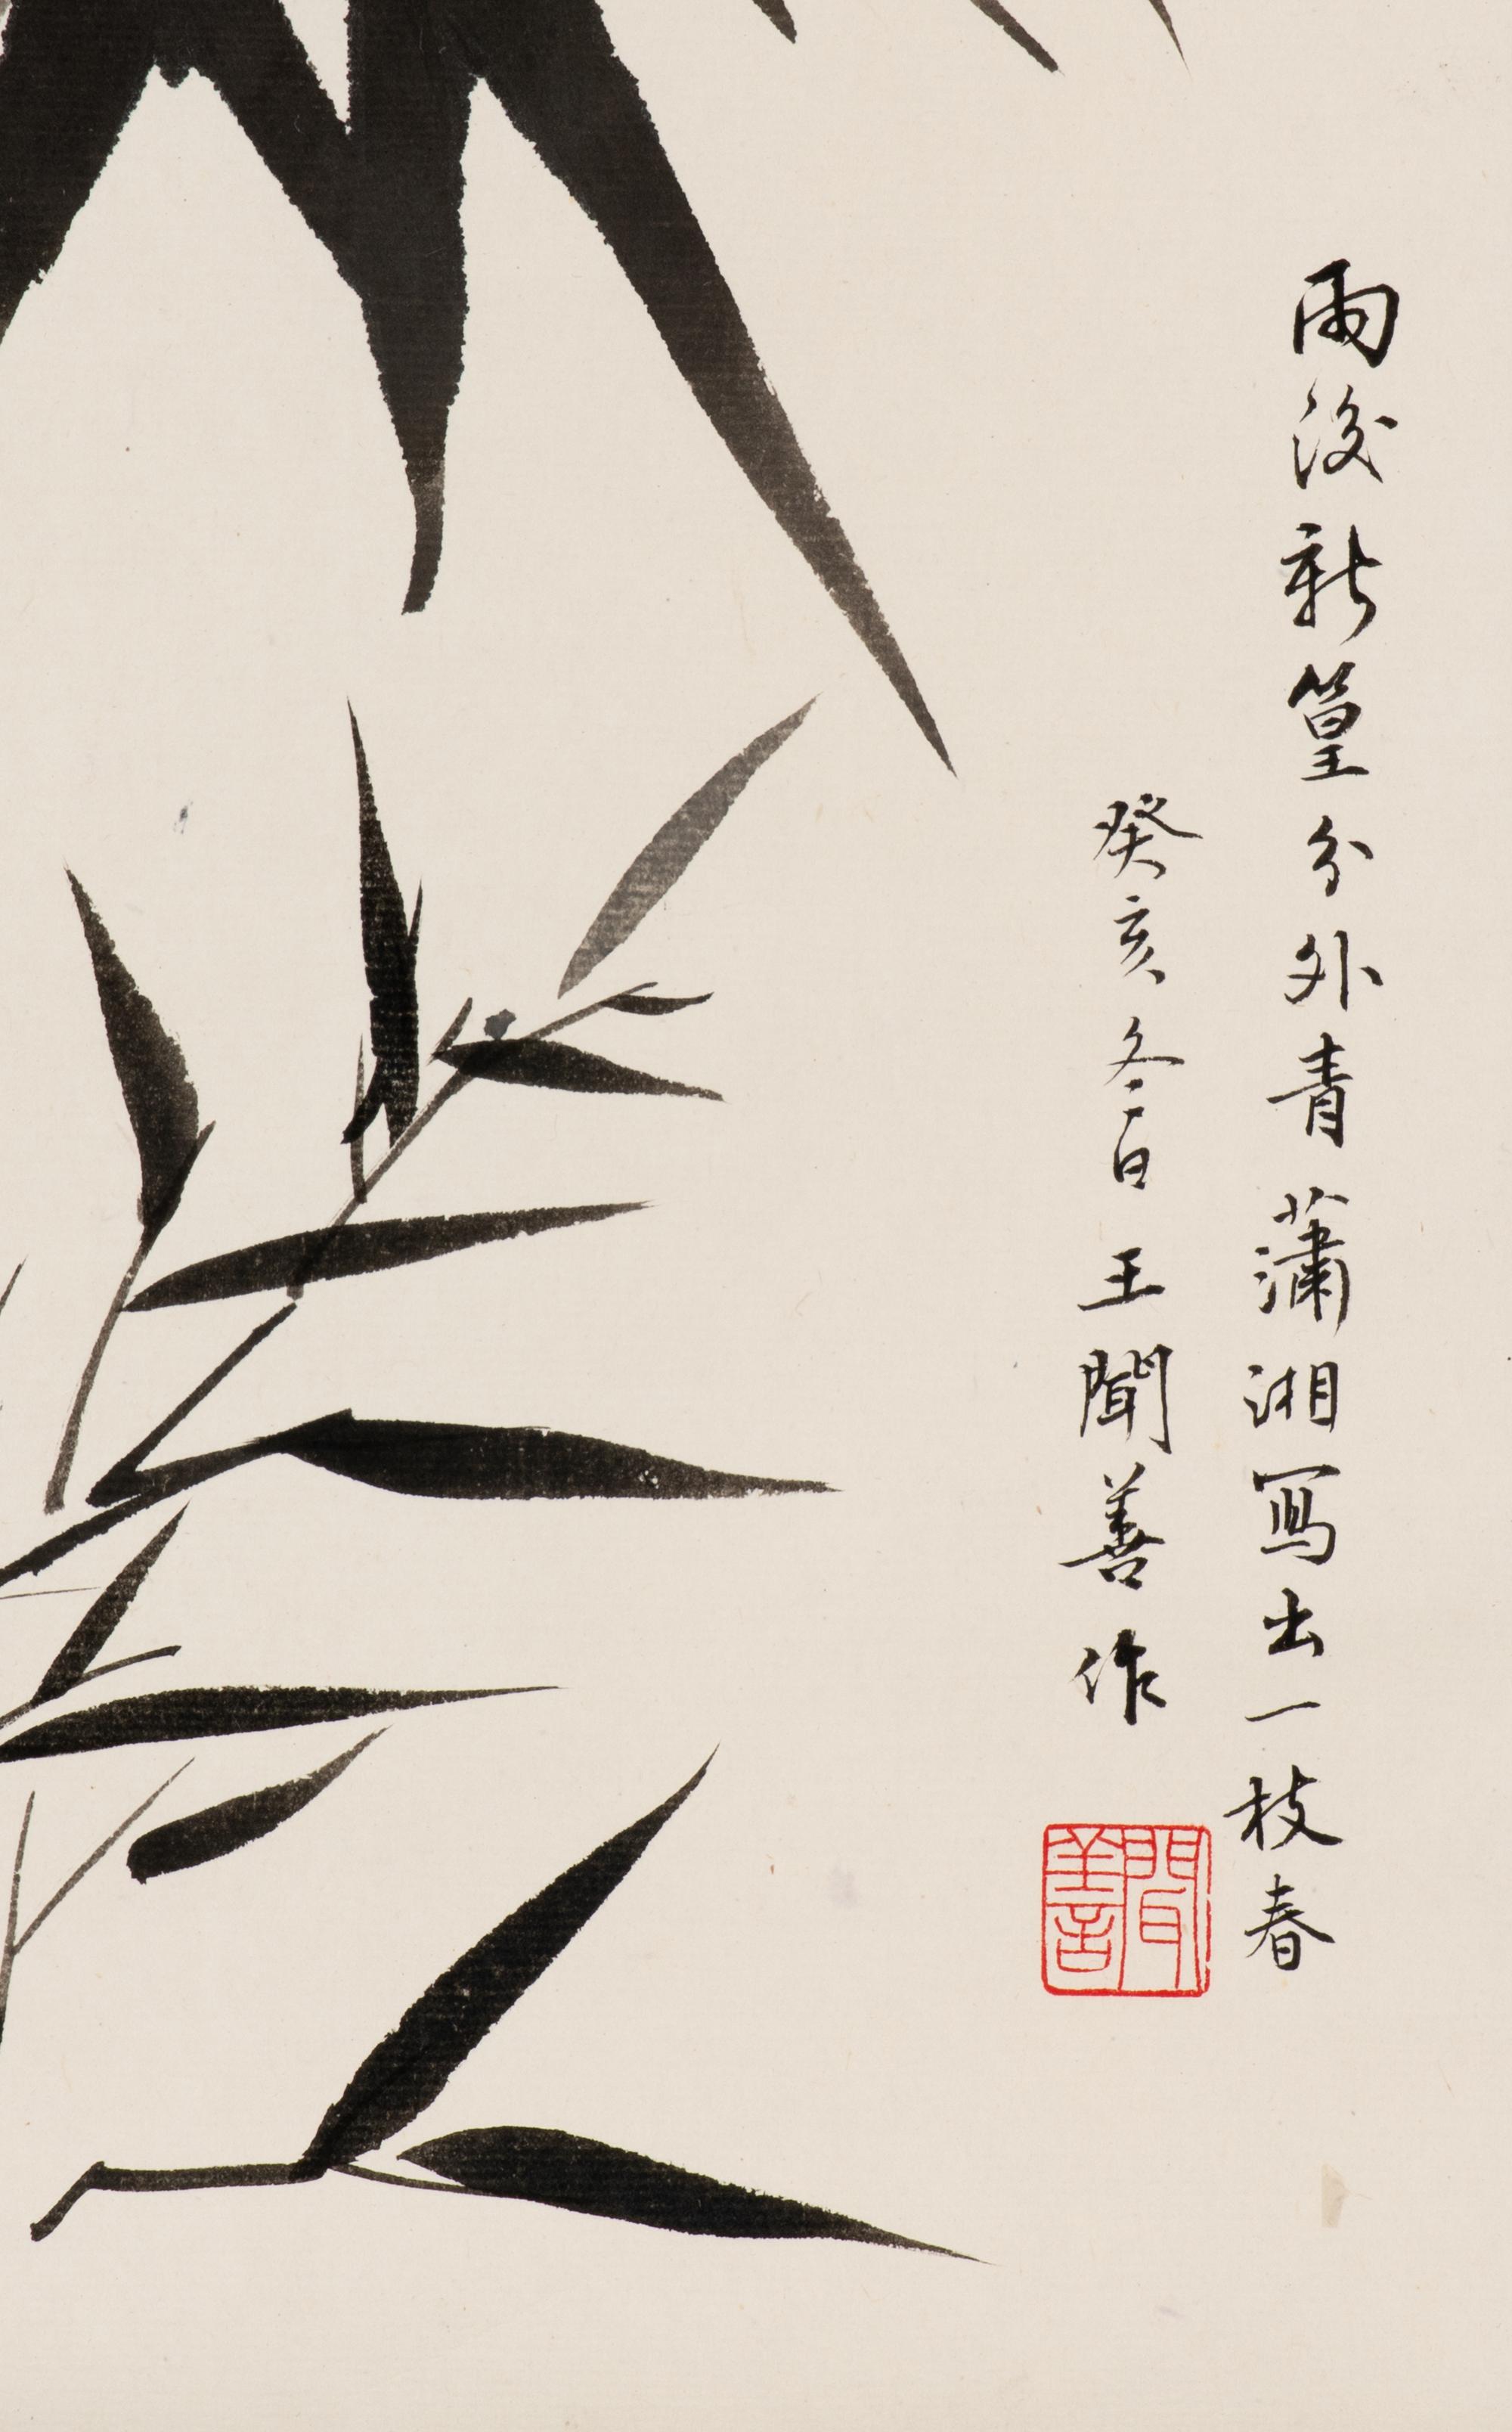 雨後新篁分外青瀟湘寫出一枝春
癸亥冬日王聞善作
聞善